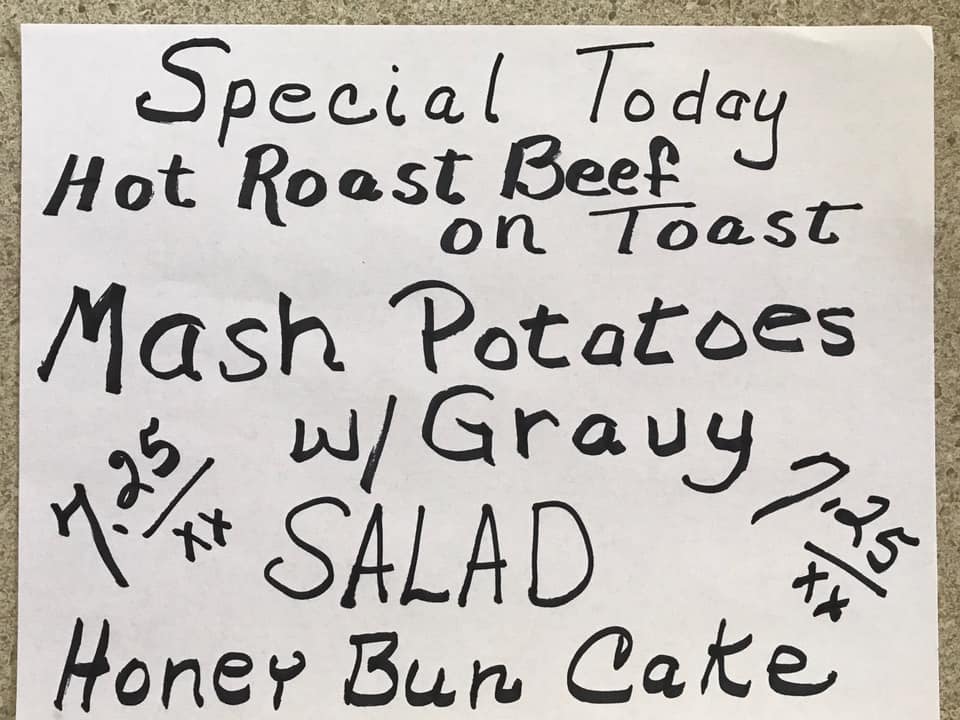 Special Today
Hot Roast Beef
on Toast
Mash Potatoes
w/ Gravy
7.25/xx
7.25/xx
SALAD
Honey Bun Cake